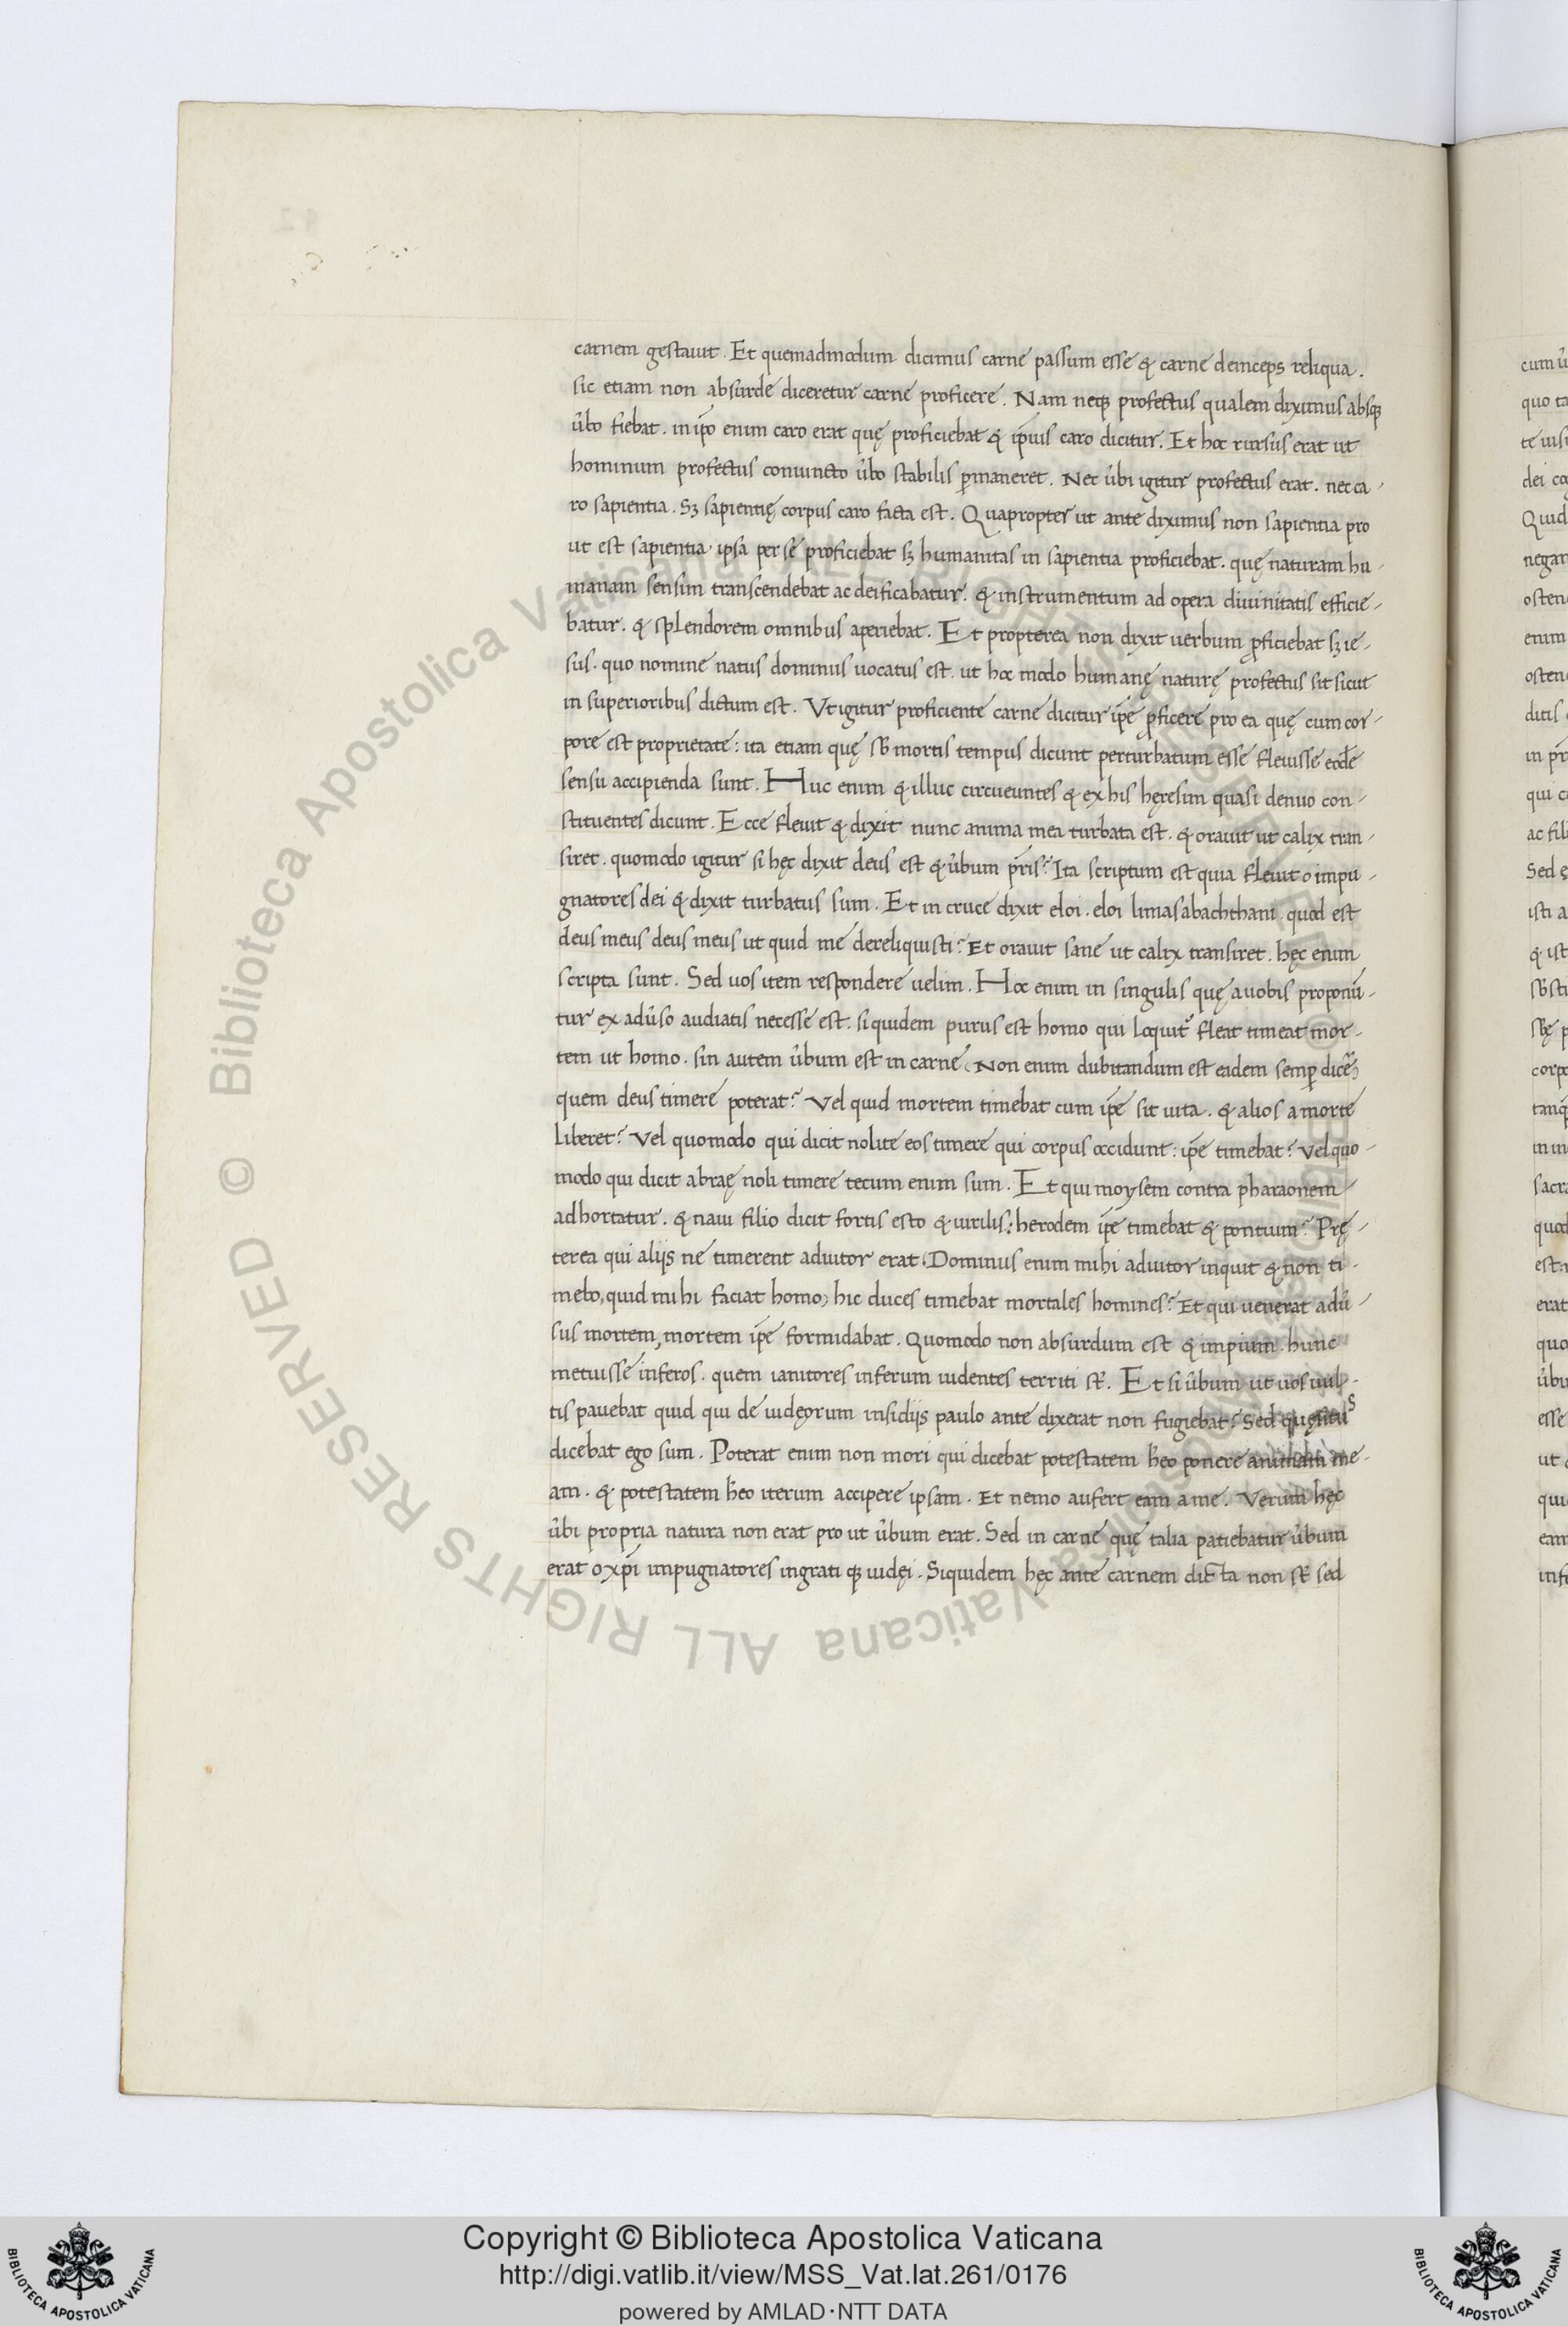 carnem gestauit. Et quemadmodum dicimus carne passum esse & carne deinceps reliqua.
sic etiam non absurde diceretur carne proficere. Nam neqꝫ profectus qualem diximus absqꝫ
ũbo fiebat. in ip̃o enim caro erat quę proficiebat & ip̃ius caro dicitur. Et hoc rursus erat ut
hominum profectus coniuncto ũbo stabilis ꝑmaneret. Nec ũbi igitur profectus erat. nec ca-
ro sapientia. Sꝫ sapientię corpus caro facta est. Quapropter ut ante diximus non sapientia pro
ut est sapientia. ipsa per se proficiebat sꝫ humanitas in sapientia proficiebat. quę naturam hu-
manam sensim transcendebat ac deificabatur. & instrumentum ad opera diuinitatis efficie-
batur. & splendorem omnibus aperiebat. Et propterea non dixit uerbum ꝓficiebat sꝫ ie-
sus. quo nomine natus dominus uocatus est. ut hoc modo humanę naturę profectus sit sicut
in superioribus dictum est. Vt igitur proficiente carne dicitur ip̃e ꝓficere pro ea quę cum cor-
pore est proprietate: ita etiam quę sƀ mortis tempus dicunt perturbatum esse fleuisse eod̃e
sensu accipienda sunt. Huc enim & illuc circueuntes & ex his hęresim quasi denuo con-
stituentes dicunt. Ecce fleuit & dixit nunc anima mea turbata est. & orauit ut calix tran-
siret. quomodo igitur si hęc dixit deus est & ũbum p̃ris? Ita scriptum est quia fleuit o impu-
gnatores dei & dixit turbatus sum. Et in cruce dixit eloi. eloi limasabachthani. quod est
deus meus deus meus ut quid me dereliquisti? Et orauit sane ut calix transiret. hęc enim
scripta sunt. Sed uos item respondere uelim. Hoc enim in singulis quę a uobis proponũ-
tur ex adũso audiatis necesse est. si quidem purus est homo qui loquit᷑ fleat timeat mor-
tem ut homo. sin autem ũbum est in carne (Non enim dubitandum est eadem semꝑ dicẽ)
quem deus timere poterat? Vel quid mortem timebat cum ip̃e sit uita. & alios a morte
liberet? Vel quomodo qui dicit nolite eos timere qui corpus occidunt: ip̃e timebat? Vel quo-
modo qui dicit abraę noli timere tecum enim sum. Et qui moysem contra pharaonem
adhortatur. & naui filio dicit fortis esto & uirilis: herodem ip̃e timebat & pontium? Prę-
terea qui alijs ne timerent adiutor erat (Dominus enim mihi adiutor inquit & non ti-
mebo, quid mihi faciat homo) hic duces timebat mortales homines? Et qui uenerat adũ-
sus mortem, mortem ip̃e formidabat. Quomodo non absurdum est & impium. hunc
metuisse inferos. quem ianitores inferum uidentes territi st̃. Et si ũbum ut uos uul-
tis pauebat quid qui de iudęorum insidijs paulo ante dixerat non fugiebat? Sed quęsitus
dicebat ego sum. Poterat enim non mori qui dicebat potestatem ħeo ponere animam me-
am. & potestatem ħeo iterum accipere ipsam. Et nemo aufert eam a me. Verum hęc
ũbi propria natura non erat pro ut ũbum erat. Sed in carne quę talia patiebatur ũbum
erat o xp̃i impugnatores ingrati qꝫ iudęi. Siquidem hęc ante carnem dicta non st̃ sed
Copyright © Biblioteca Apostolica Vaticana
http://digi.vatlib.it/view/MSS_Vat.lat.261/0176
powered by AMLAD·NTT DATA
BIBLIOTECA APOSTOLICA VATICANA
BIBLIOTECA APOSTOLICA VATICANA
© Biblioteca Apostolica Vaticana ALL RIGHTS RESERVED